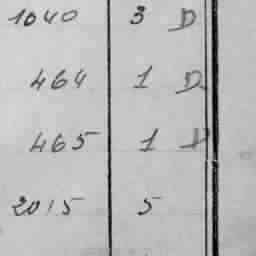 1040 3 D
464 1 D
465 1 D
2015 5